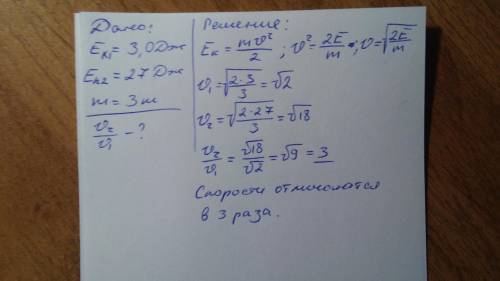 Дано:
E_к₁ = 3,0 Дж
E_к₂ = 27 Дж
m = 3 т
v₂/v₁ - ?
Решение:
E_к = mv²/2 ; v² = 2E/m ; v = √(2E/m)
v₁ = √(2·3/3) = √2
v₂ = √(2·27/3) = √18
v₂/v₁ = √18/√2 = √9 = 3
Скорости отличаются
в 3 раза.